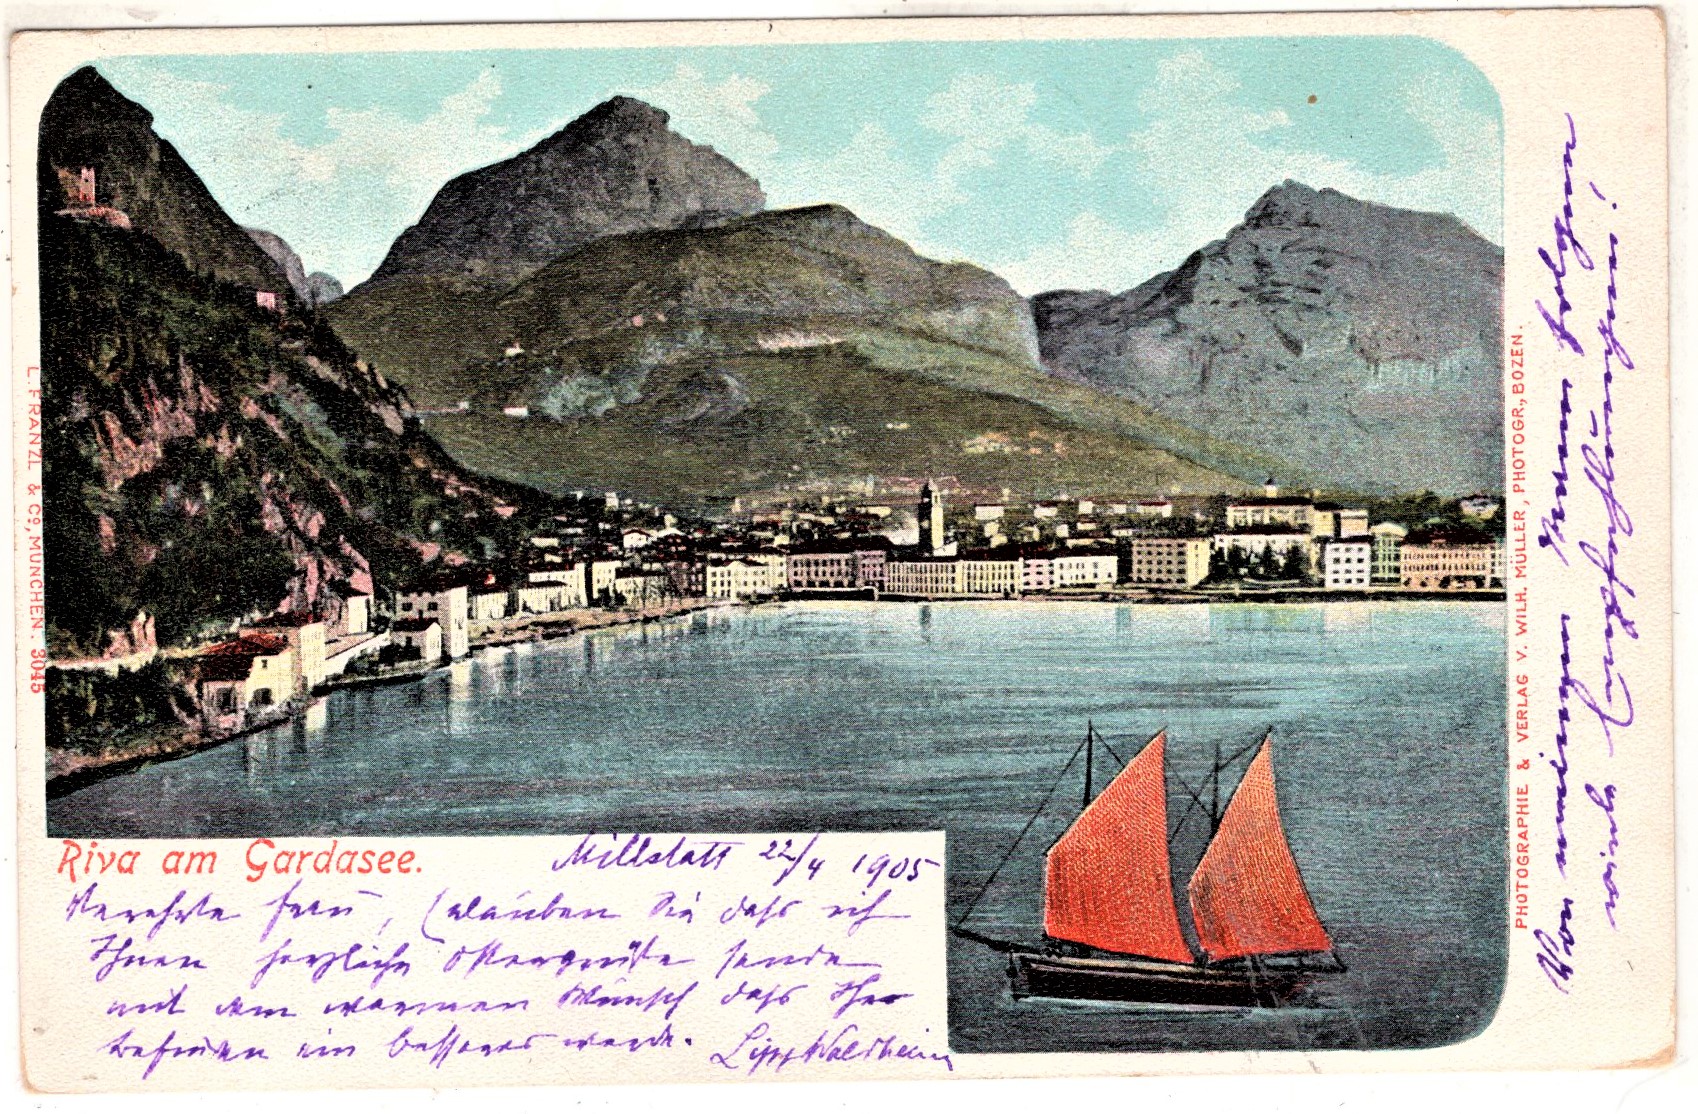 L. FRANZL & Cº, MÜNCHEN. 3045
Riva am Gardasee.
Millstatt 22/4 1905
Verehrte Frau, Glauben Sie daſs ich
Ihnen herzliche Ostergrüße sende
mit dem warmen Wunsch daſs Ihr
befinden ein besseres werde.
PHOTOGRAPHIE & VERLAG V. WILH. MÜLLER, PHOTOGR., BOZEN.
Von meinem